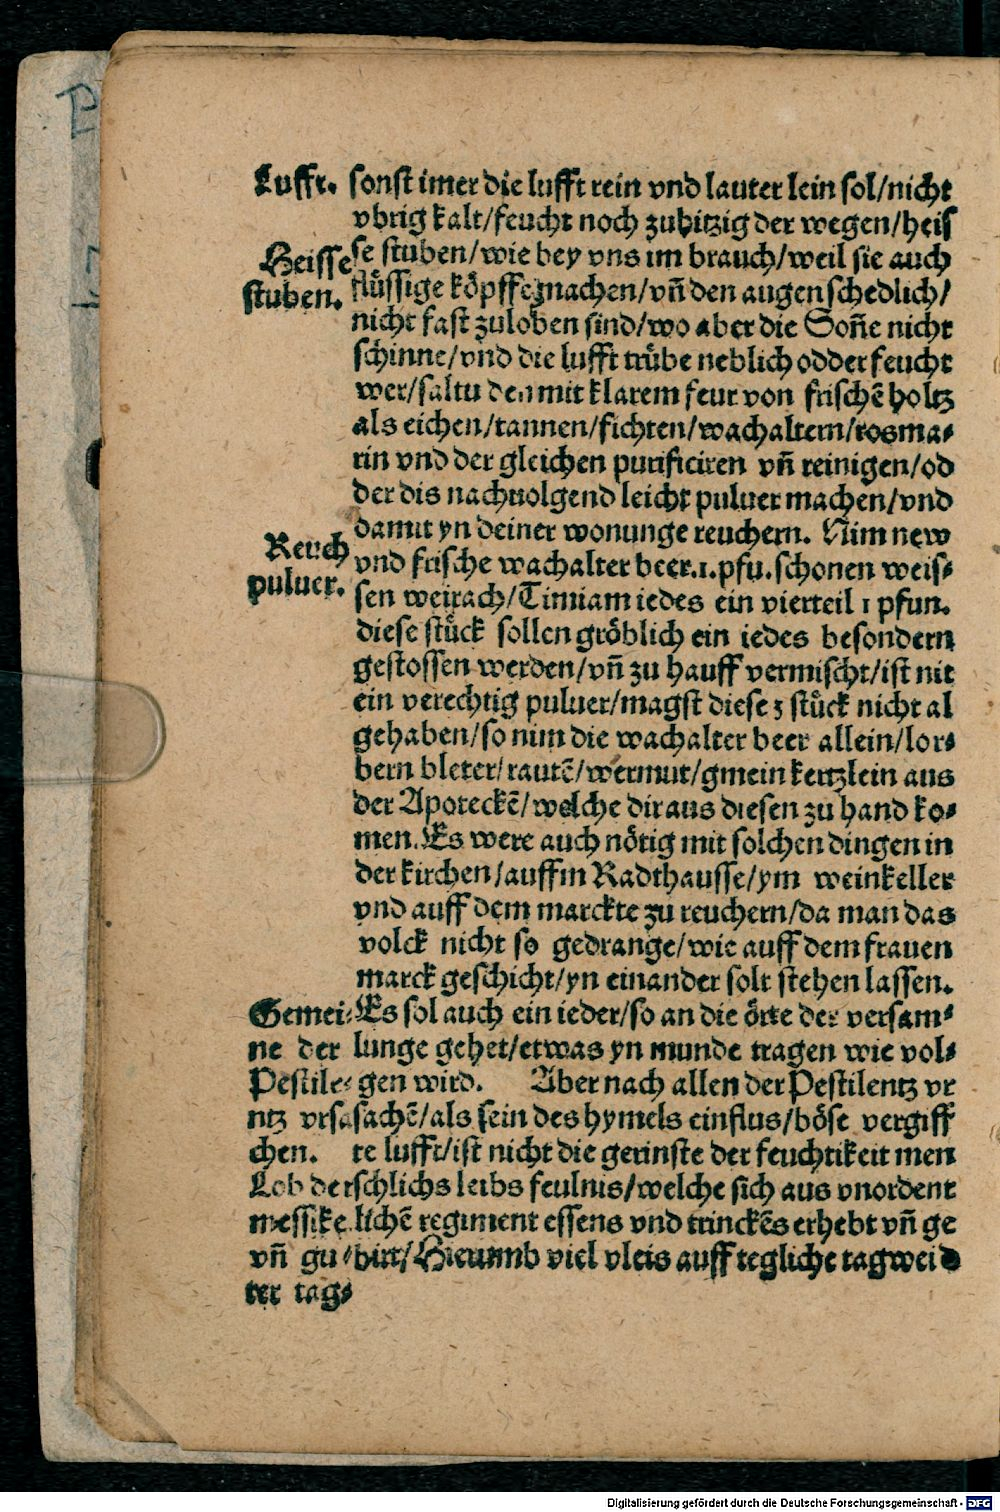 Lufft. sonst imer die lufft rein vnd lauter sein sol/nicht
vbrig kalt/feucht noch zuhitzig der wegen/heis
Heisse se stuben/wie bey vns im brauch/weil sie auch
stuben. flüssige köpffe machen/vñ den augen schedlich/
nicht fast zuloben sind/wo aber die Soñe nicht
schinne/vnd die lufft trübe neblich odder feucht
wer/saltu den mit klarem feur von frischē holtz
als eichen/tannen/fichten/wachaltern/rosma⸗
rin vnd der gleichen purificiren vñ reinigen/od
der dis nachuolgend leicht puluer machen/vnd
damit yn deiner wonunge reuchern. Nim new
Reuch vnd frische wachalter beer.1.pfu.schonen weis⸗
puluer. sen weirach/Timiam iedes ein vierteil 1 pfun.
diese stück sollen gröblich ein iedes besondern
gestossen werden/vñ zu hauff vermischt/ist nit
ein verechtig puluer/magst diese 3 stück nicht al
gehaben/so nim die wachalter beer allein/lor⸗
bern bleter/rautē/wermut/gmein kertzlein aus
der Apoteckē/welche dir aus diesen zu hand ko⸗
men. Es were auch nötig mit solchen dingen in
der kirchen/auffm Radthausse/ym weinkeller
vnd auff dem marckte zu reuchern/da man das
volck nicht so gedrange/wie auff dem frauen
marck geschicht/yn einander solt stehen lassen.
Gemei⸗ Es sol auch ein ieder/so an die örte der versam⸗
ne der lunge gehet/etwas yn munde tragen wie vol⸗
Pestile⸗ gen wird. Aber nach allen der Pestilentz vr
ntz vrsa sachē/als sein des hymels einflus/böse vergiff
chen. te lufft/ist nicht die gerinste der feuchtikeit men
Lob der schlichs leibs feulnis/welche sich aus vnordent
messike lichē regiment essens vnd trinckēs erhebt vñ ge
vñ gu⸗ birt/Hieumb viel vleis auff tegliche tagwei d
ter tag⸗
Digitalisierung gefördert durch die Deutsche Forschungsgemeinschaft - DFG